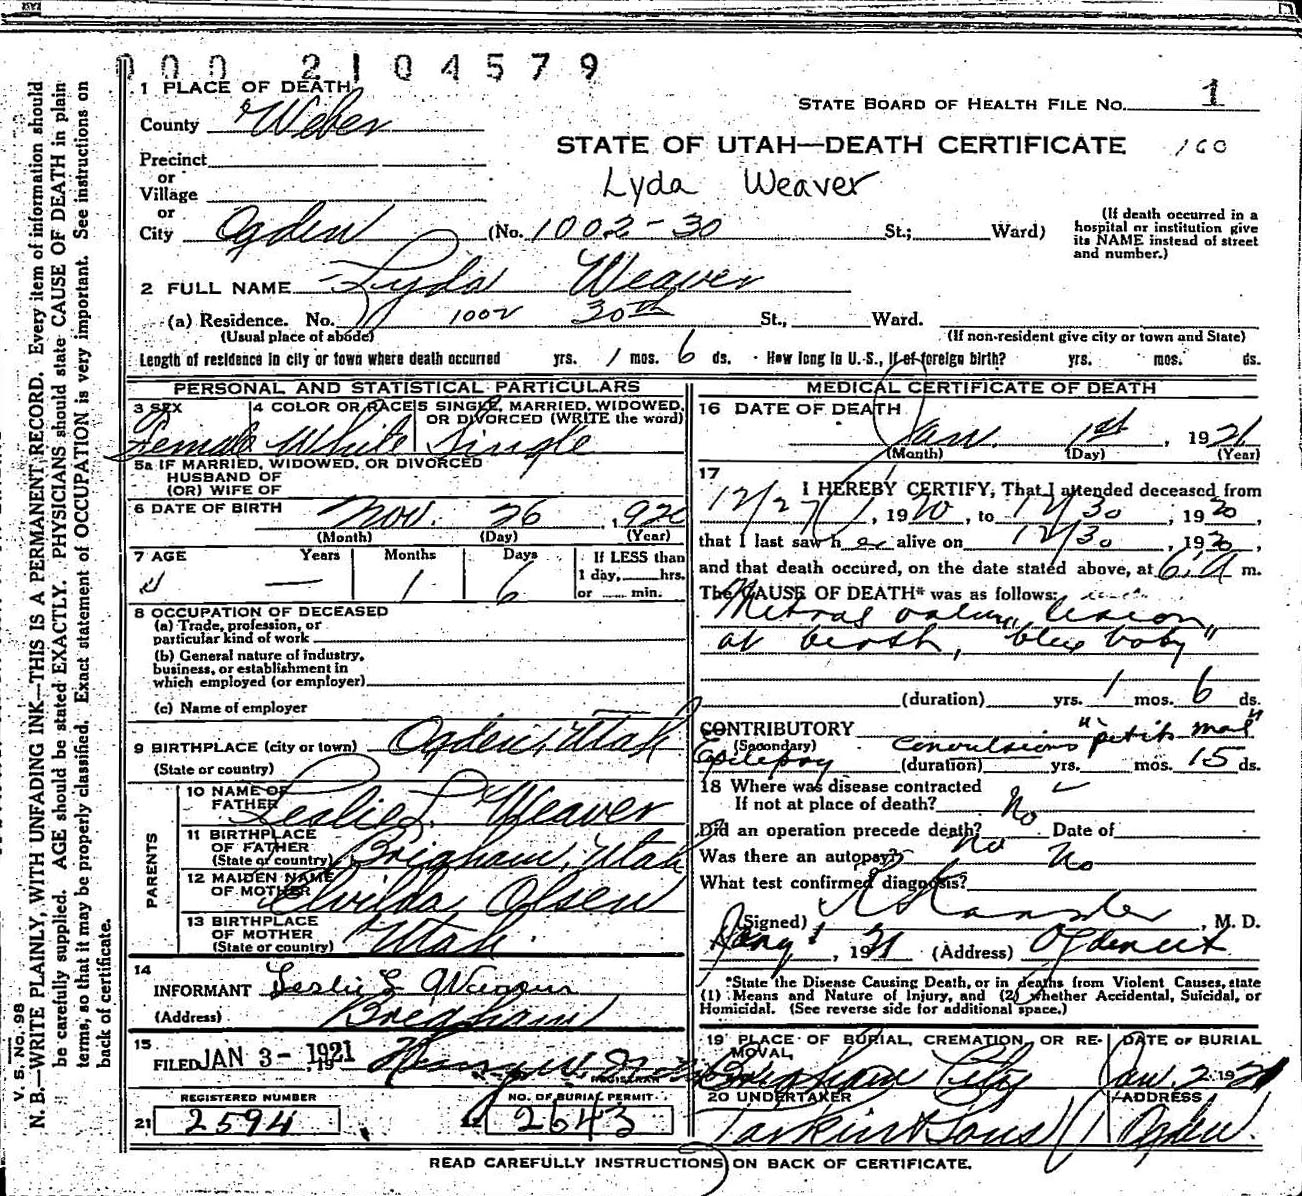 000 2104579
1 PLACE OF DEATH
STATE BOARD OF HEALTH FILE NO. 1
County Weber
STATE OF UTAH—DEATH CERTIFICATE 160
Precinct
or
Village
Lyda Weaver
or
City Ogden (No. 1002-30 St.; Ward)
(If death occurred in a hospital or institution give its NAME instead of street and number.)
2 FULL NAME Lyda Weaver
(a) Residence. No. 1002 30th St., Ward.
(Usual place of abode) (If non-resident give city or town and State)
Length of residence in city or town where death occurred yrs. 1 mos. 6 ds. How long in U.S., if of foreign birth? yrs. mos. ds.
PERSONAL AND STATISTICAL PARTICULARS
3 SEX 4 COLOR OR RACE 5 SINGLE, MARRIED, WIDOWED, OR DIVORCED (WRITE the word)
Female White Single
5a IF MARRIED, WIDOWED, OR DIVORCED
HUSBAND OF
(OR) WIFE OF
6 DATE OF BIRTH Nov. 26, 1920
(Month) (Day) (Year)
7 AGE Years Months Days If LESS than
— 1 6 1 day, hrs.
or min.
8 OCCUPATION OF DECEASED
(a) Trade, profession, or
particular kind of work
(b) General nature of industry,
business, or establishment in
which employed (or employer)
(c) Name of employer
9 BIRTHPLACE (city or town) Ogden, Utah
(State or country)
PARENTS
10 NAME OF FATHER Leslie L. Weaver
11 BIRTHPLACE OF FATHER (State or country) Brigham, Utah
12 MAIDEN NAME OF MOTHER Olsen
13 BIRTHPLACE OF MOTHER (State or country) Utah.
14
INFORMANT Leslie L Weaver
(Address) Brigham
15
FILED JAN 3 - 1921, 19
REGISTRAR
REGISTERED NUMBER NO. OF BURIAL PERMIT
21 2594 22 2643
MEDICAL CERTIFICATE OF DEATH
16 DATE OF DEATH
Jan. 1st, 1921
(Month) (Day) (Year)
17
I HEREBY CERTIFY, That I attended deceased from
12/27, 1920, to 12/30, 1920,
that I last saw her alive on 12/30, 1920,
and that death occured, on the date stated above, at 6 A m.
The CAUSE OF DEATH* was as follows:
Mitral valve lesion
at birth, "blue baby"
(duration) yrs. 1 mos. 6 ds.
CONTRIBUTORY
(Secondary) convulsions "petit mal"
Epilepsy (duration) yrs. mos. 15 ds.
18 Where was disease contracted
If not at place of death? No
Did an operation precede death? No Date of
Was there an autopsy? No
What test confirmed diagnosis?
(Signed) , M. D.
Jany 1, 1921 (Address) Ogden Ut
*State the Disease Causing Death, or in deaths from Violent Causes, state
(1) Means and Nature of Injury, and (2) whether Accidental, Suicidal, or
Homicidal. (See reverse side for additional space.)
19 PLACE OF BURIAL, CREMATION, OR REMOVAL, DATE OF BURIAL
Brigham City Jan. 2 1921
20 UNDERTAKER ADDRESS
Larkin & Sons Ogden.
READ CAREFULLY INSTRUCTIONS ON BACK OF CERTIFICATE.
V. S. No. 98
N. B.—WRITE PLAINLY, WITH UNFADING INK—THIS IS A PERMANENT RECORD. Every item of information should
be carefully supplied. AGE should be stated EXACTLY. PHYSICIANS should state CAUSE OF DEATH in plain
terms, so that it may be properly classified. Exact statement of OCCUPATION is very important. See instructions on
back of certificate.